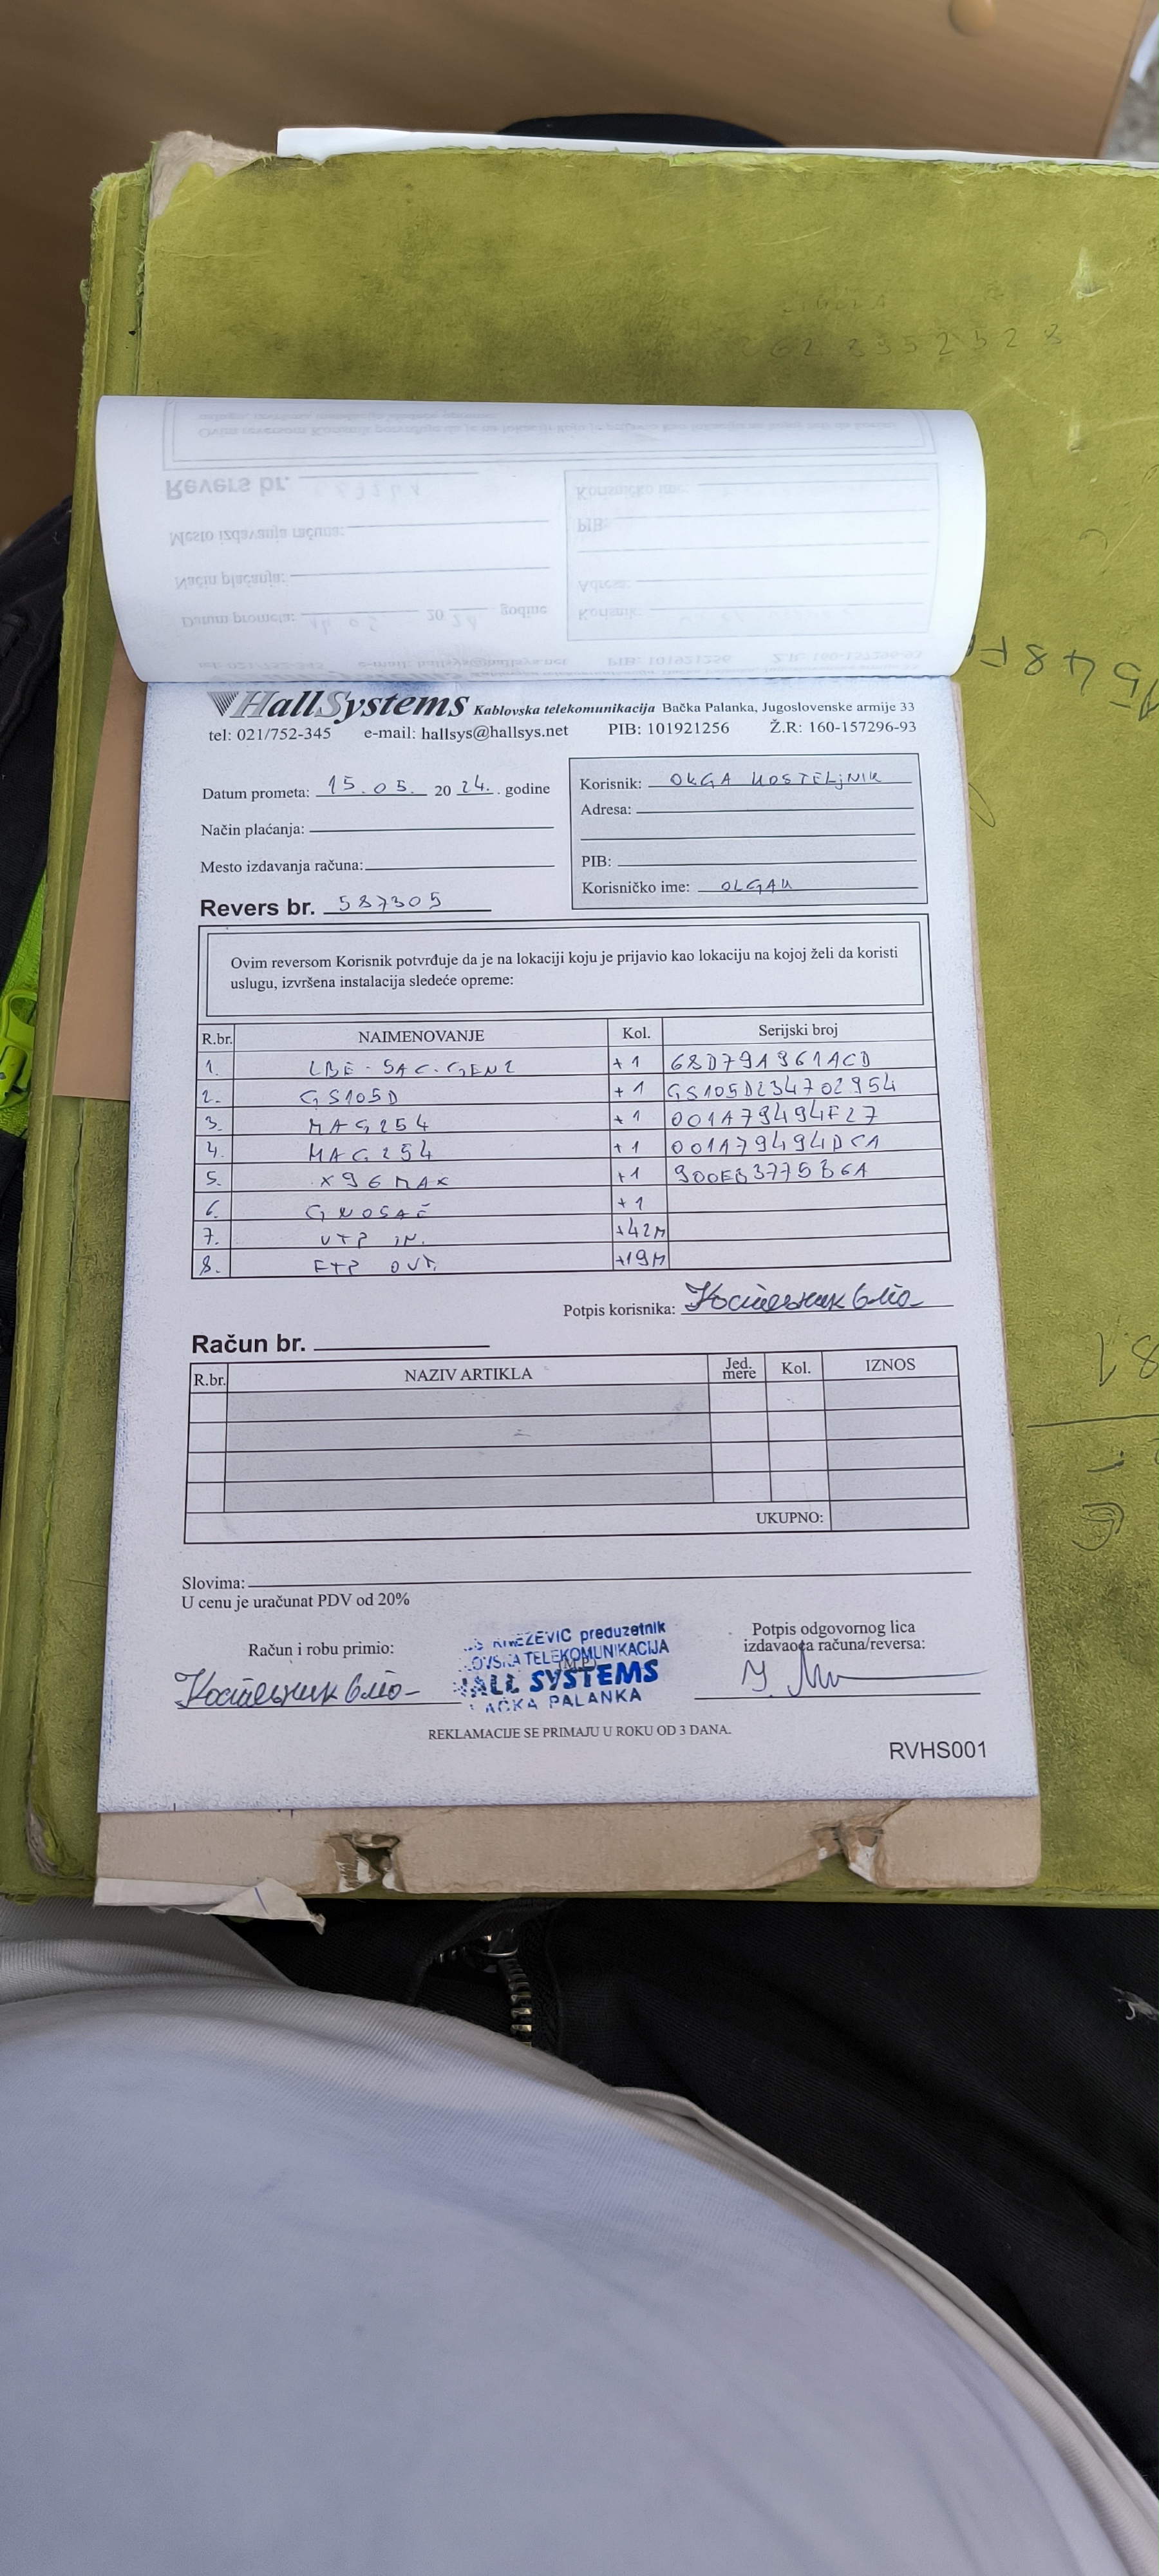 HallSystems Kablovska telekomunikacija Bačka Palanka, Jugoslovenske armije 33
tel: 021/752-345 e-mail: hallsys@hallsys.net PIB: 101921256 Ž.R: 160-157296-93
Datum prometa: 15.05. 20 24. . godine
Način plaćanja:
Mesto izdavanja računa:
Revers br. 587305
Korisnik: OLGA KOSTELjNIK
Adresa:
PIB:
Korisničko ime: OLGAK
Ovim reversom Korisnik potvrđuje da je na lokaciji koju je prijavio kao lokaciju na kojoj želi da koristi
uslugu, izvršena instalacija sledeće opreme:
R.br. NAIMENOVANJE Kol. Serijski broj
1. LBE-5AC-GEN2 +1 68D79A961ACD
2. GS105D +1 GS105D234702954
3. MAG254 +1 001A79494F27
4. MAG254 +1 001A79494DCA
5. X96 MAX +1 900EB3775B6A
6. G NOSAČ +1
7. UTP IN. +42M
8. FTP OUT. +19M
Potpis korisnika:
Račun br.
R.br. NAZIV ARTIKLA Jed. mere Kol. IZNOS
UKUPNO:
Slovima:
U cenu je uračunat PDV od 20%
Račun i robu primio:
KNEZEVIĆ preduzetnik
TELEKOMUNIKACIJA
HALL SYSTEMS
BAČKA PALANKA
(M.P.)
Potpis odgovornog lica
izdavaoca računa/reversa:
REKLAMACIJE SE PRIMAJU U ROKU OD 3 DANA.
RVHS001